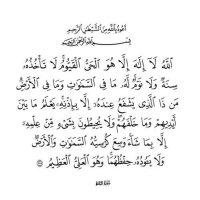 أعوذ بالله من الشيطان الرجيم
بسم الله الرحمن الرحيم
ٱللَّهُ لَآ إِلَٰهَ إِلَّا هُوَ ٱلْحَىُّ ٱلْقَيُّومُ لَا تَأْخُذُهُۥ
سِنَةٌ وَلَا نَوْمٌ لَّهُۥ مَا فِى ٱلسَّمَٰوَٰتِ وَمَا فِى ٱلْأَرْضِ
مَن ذَا ٱلَّذِى يَشْفَعُ عِندَهُۥٓ إِلَّا بِإِذْنِهِۦ يَعْلَمُ مَا بَيْنَ
أَيْدِيهِمْ وَمَا خَلْفَهُمْ وَلَا يُحِيطُونَ بِشَىْءٍ مِّنْ عِلْمِهِۦٓ
إِلَّا بِمَا شَآءَ وَسِعَ كُرْسِيُّهُ ٱلسَّمَٰوَٰتِ وَٱلْأَرْضَ
وَلَا يَـُٔودُهُۥ حِفْظُهُمَا وَهُوَ ٱلْعَلِىُّ ٱلْعَظِيمُ